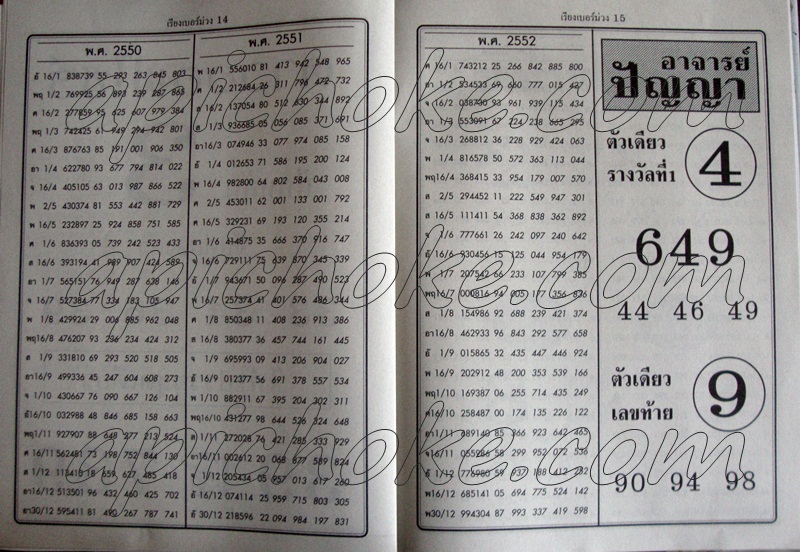 เรียงเบอร์ม่วง 14
พ.ศ. 2550
อ 16/1 838739 55 293 263 845 803
พฤ 1/2 769925 56 893 239 287 863
ศ 16/2 277859 95 625 607 979 384
พฤ 1/3 742425 61 949 294 942 801
ศ 16/3 876763 85 191 001 906 350
อา 1/4 622780 93 677 794 814 022
จ 16/4 405105 63 013 987 866 522
พ 2/5 430374 81 553 442 881 729
พ 16/5 232897 25 924 858 751 585
ศ 1/6 836393 05 739 242 523 433
ส 16/6 393194 41 989 907 424 589
อา 1/7 565151 76 949 287 638 146
จ 16/7 527384 77 334 183 105 947
พ 1/8 429924 29 006 885 962 048
พฤ 16/8 476207 93 236 234 424 312
ส 1/9 331810 69 293 520 518 505
อา16/9 499336 45 247 604 608 273
จ 1/10 430667 76 090 667 126 104
อ16/10 032988 48 846 685 158 663
พฤ1/11 927907 88 648 277 213 524
ศ 16/11 562481 73 198 752 844 130
ส 1/12 113410 18 659 627 485 418
อา16/12 513501 96 432 460 425 702
อา30/12 595411 81 490 267 787 741
พ.ศ. 2551
พ 16/1 556010 81 413 942 548 965
ศ 1/2 212684 26 311 796 472 732
ส 16/2 137054 80 512 630 344 892
ส 1/3 936685 05 056 085 371 691
อา16/3 074946 33 077 974 085 158
อ 1/4 012653 71 586 195 200 124
พ 16/4 982800 64 802 584 043 008
ศ 2/5 453011 62 001 133 001 792
ศ 16/5 329231 69 193 120 355 214
อา 1/6 414875 35 666 370 916 747
จ 16/6 729111 75 639 870 345 339
อ 1/7 943671 50 096 287 490 523
พ 16/7 257374 41 401 576 486 344
ศ 1/8 850348 11 408 236 913 386
ส 16/8 380377 36 457 744 161 445
จ 1/9 695993 09 413 206 904 027
อ 16/9 012377 56 691 378 557 534
พ 1/10 882911 67 395 204 302 311
พฤ16/10 431277 98 644 526 324 648
ส 1/11 272028 76 421 285 333 929
อา16/11 002612 20 068 877 589 824
จ 1/12 205434 05 957 013 617 260
อ 16/12 074114 25 959 715 803 305
อ 30/12 218596 22 094 984 197 831
เรียงเบอร์ม่วง 15
พ.ศ. 2552
ศ 16/1 743212 25 266 842 885 800
อา 1/2 534533 69 660 777 015 427
จ 16/2 058730 93 961 939 115 434
อา 1/3 553091 67 224 238 665 295
จ 16/3 268812 36 228 929 424 063
พ 1/4 816578 50 572 363 113 044
พฤ16/4 368415 33 954 179 007 570
ส 2/5 294452 11 222 549 947 301
ส 16/5 111411 54 368 838 362 892
จ 1/6 777661 26 242 097 240 642
อ 16/6 930456 15 125 044 954 179
พ 1/7 207542 66 233 107 799 385
พฤ16/7 000816 94 005 177 356 876
ส 1/8 154986 92 688 239 421 374
อา16/8 462933 96 843 292 577 658
อ 1/9 015865 32 435 447 446 924
พ 16/9 202912 48 200 353 539 166
พฤ 1/10 169387 06 255 714 435 249
ศ16/10 258487 00 174 135 226 122
อา1/11 989140 85 366 923 642 465
จ16/11 055286 58 299 952 072 538
อ 1/12 776980 59 937 188 412 252
พ16/12 685141 05 694 775 524 142
พ30/12 994304 87 993 337 419 598
อาจารย์
ปัญญา
ตัวเดียว
รางวัลที่1
4
649
44 46 49
ตัวเดียว
เลขท้าย
9
90 94 98
apichoke.com
apichoke.com
apichoke.com
apichoke.com